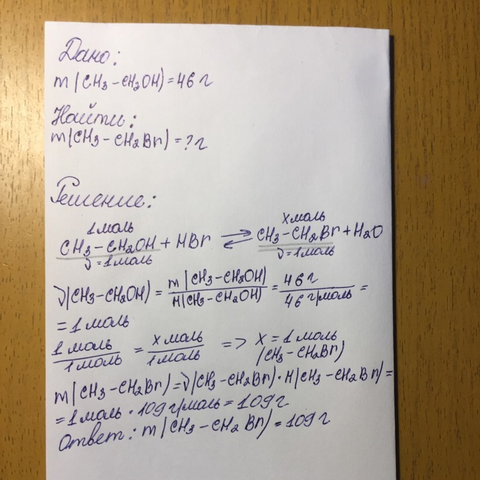 Дано:
m(CH3-CH2OH)=46г
Найти:
m(CH3-CH2Br)=?г
Решение:
1 моль x моль
CH3-CH2OH + HBr ⇌ CH3-CH2Br + H2O
ν=1 моль ν=1 моль
ν(CH3-CH2OH) = m(CH3-CH2OH)/M(CH3-CH2OH) = 46г/46г/моль =
= 1 моль
1 моль/1 моль = x моль/1 моль => x = 1 моль
(CH3-CH2Br)
m(CH3-CH2Br)=ν(CH3-CH2Br)·M(CH3-CH2Br)=
= 1 моль · 109 г/моль = 109г
Ответ: m(CH3-CH2Br)=109г